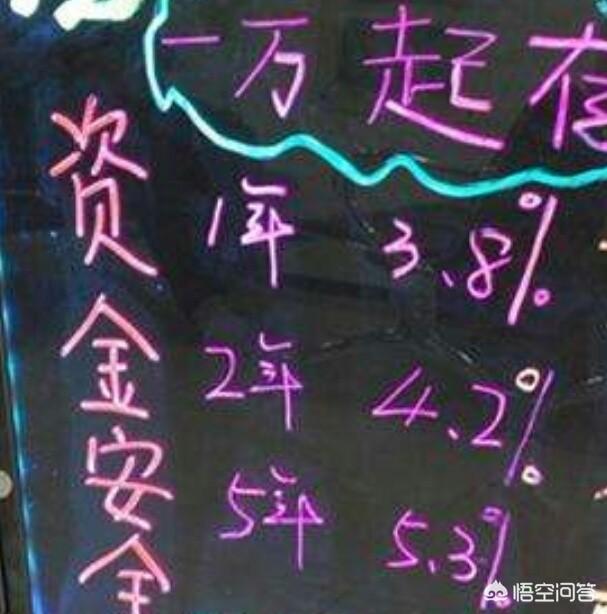 一万起存
资金安全
1年 3.8%
2年 4.2%
5年 5.3%
悟空问答